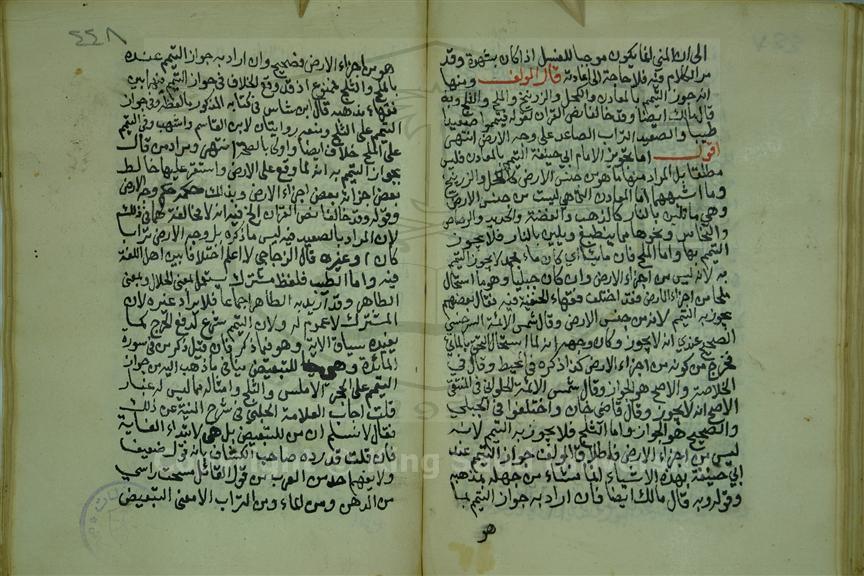 الى ان المني لما يكون موجبا للغسل اذا كان بشهوة وقد
مر الكلام فيه فلا حاجة الى اعادته قال المؤلف ومنها
انه جوز التيمم بالمعادن والكحل والزرنيخ والملح والثلج وبه
قال مالك ايضا وقد خالفا نص القران لقوله فتيمموا صعيدا
طيبا والصعيد التراب الصاعد على وجه الارض انتهى
اقول اما تجويز الامام ابي حنيفة التيمم بالمعادن فليس
مطلقا بل المراد منها ما هو من جنس الارض كالكحل والزرنيخ
وما اشبههما اما المعادن التي هي ليست من جنس الارض
وهي ما تلين بالنار كالذهب والفضة والحديد والرصاص
والنحاس ونحوها مما ينطبع ويلين بالنار فلا يجوز
التيمم بها واما الملح فان مائيا اي كان ماء فجمد لا يجوز التيمم
به لانه ليس من اجزاء الارض وان كان جبليا وهو ما استحال
ملحا من اجزاء الارض فقد اختلف فقهاء الحنفية فيه فقال بعضهم
يجوز به التيمم لانه من جنس الارض وقال شمس الائمة السرخسي
الصحيح عندي انه لا يجوز وكان وجهه انه لما استحال التحق بالمائي
فخرج من كونه من اجزاء الارض كذا ذكره في المحيط وقال في
الخلاصة والاصح هو الجواز وقال شمس الائمة الحلواني في المنتقى
الاصح انه لا يجوز وقال قاضي خان واختلفوا في الجبلي
والصحيح هو الجواز واما الثلج فلا يجوز به التيمم لانه
ليس من اجزاء الارض فاطلاق المولف جواز التيمم عند
ابي حنيفة بهذه الاشياء انما منشاه من جهله بمذهبه
وقوله وبه قال مالك ايضا فان اراد به جواز التيمم بما
هو
٤٤٨
هو من اجزاء الارض فصحيح وان اراد به جواز التيمم عنده
بالملح والثلج فممنوع اذ قد وقع الخلاف في جواز التيمم بهما بين
فقهاء مذهبه قال ابن شاس في كتابه المذكور بالفظه وفي جواز
التيمم على الثلج ومنعه روايتان لابن القاسم واشهب وفي التيمم
على الملح خلاف ايضا واولى بالصحة انتهى ومراد من قال
بجواز التيمم به انه لما وقع على الارض واستقر عليها خالط
بعض اجزائه بعض اجزاء الارض وبذلك حكمه حكم وجه الارض
وقوله وقد خالفا نص القران الخ فيه انه لا مخالفة لهما في ذلك
لان المراد بالصعيد فيه ليس ما ذكره بل وجه الارض ترابا
كان او غيره قال الزجاجي لا اعلم اختلافا بين اهل اللغة
فيه واما الطيب فلفظ مشترك يستعمل بمعنى الحلال وبمعنى
الطاهر وقد اريد به الطاهر اجماعا فلا يراد غيره لان
المشترك لا عموم له ولان التيمم شرع لدفع الحرج كما
يفيده سياق الاية وهو فيما ذكر فان قيل ذكر من في سورة
المائدة وهي للتبعيض ينافي ما ذهب اليه من جواز
التيمم على الحجر الاملس والثلج وامثاله مما ليس له غبار
قلت اجاب العلامة الحلبي في شرح المنية عن ذلك
فقال لا نسلم ان من للتبعيض بل هي لابتداء الغاية
فان قلت قد رده صاحب الكشاف بانه قول ضعيف
ولا يفهم احد من العرب من قول القائل مسحت براسي
من الدهن ومن الماء ومن التراب الا معنى التبعيض